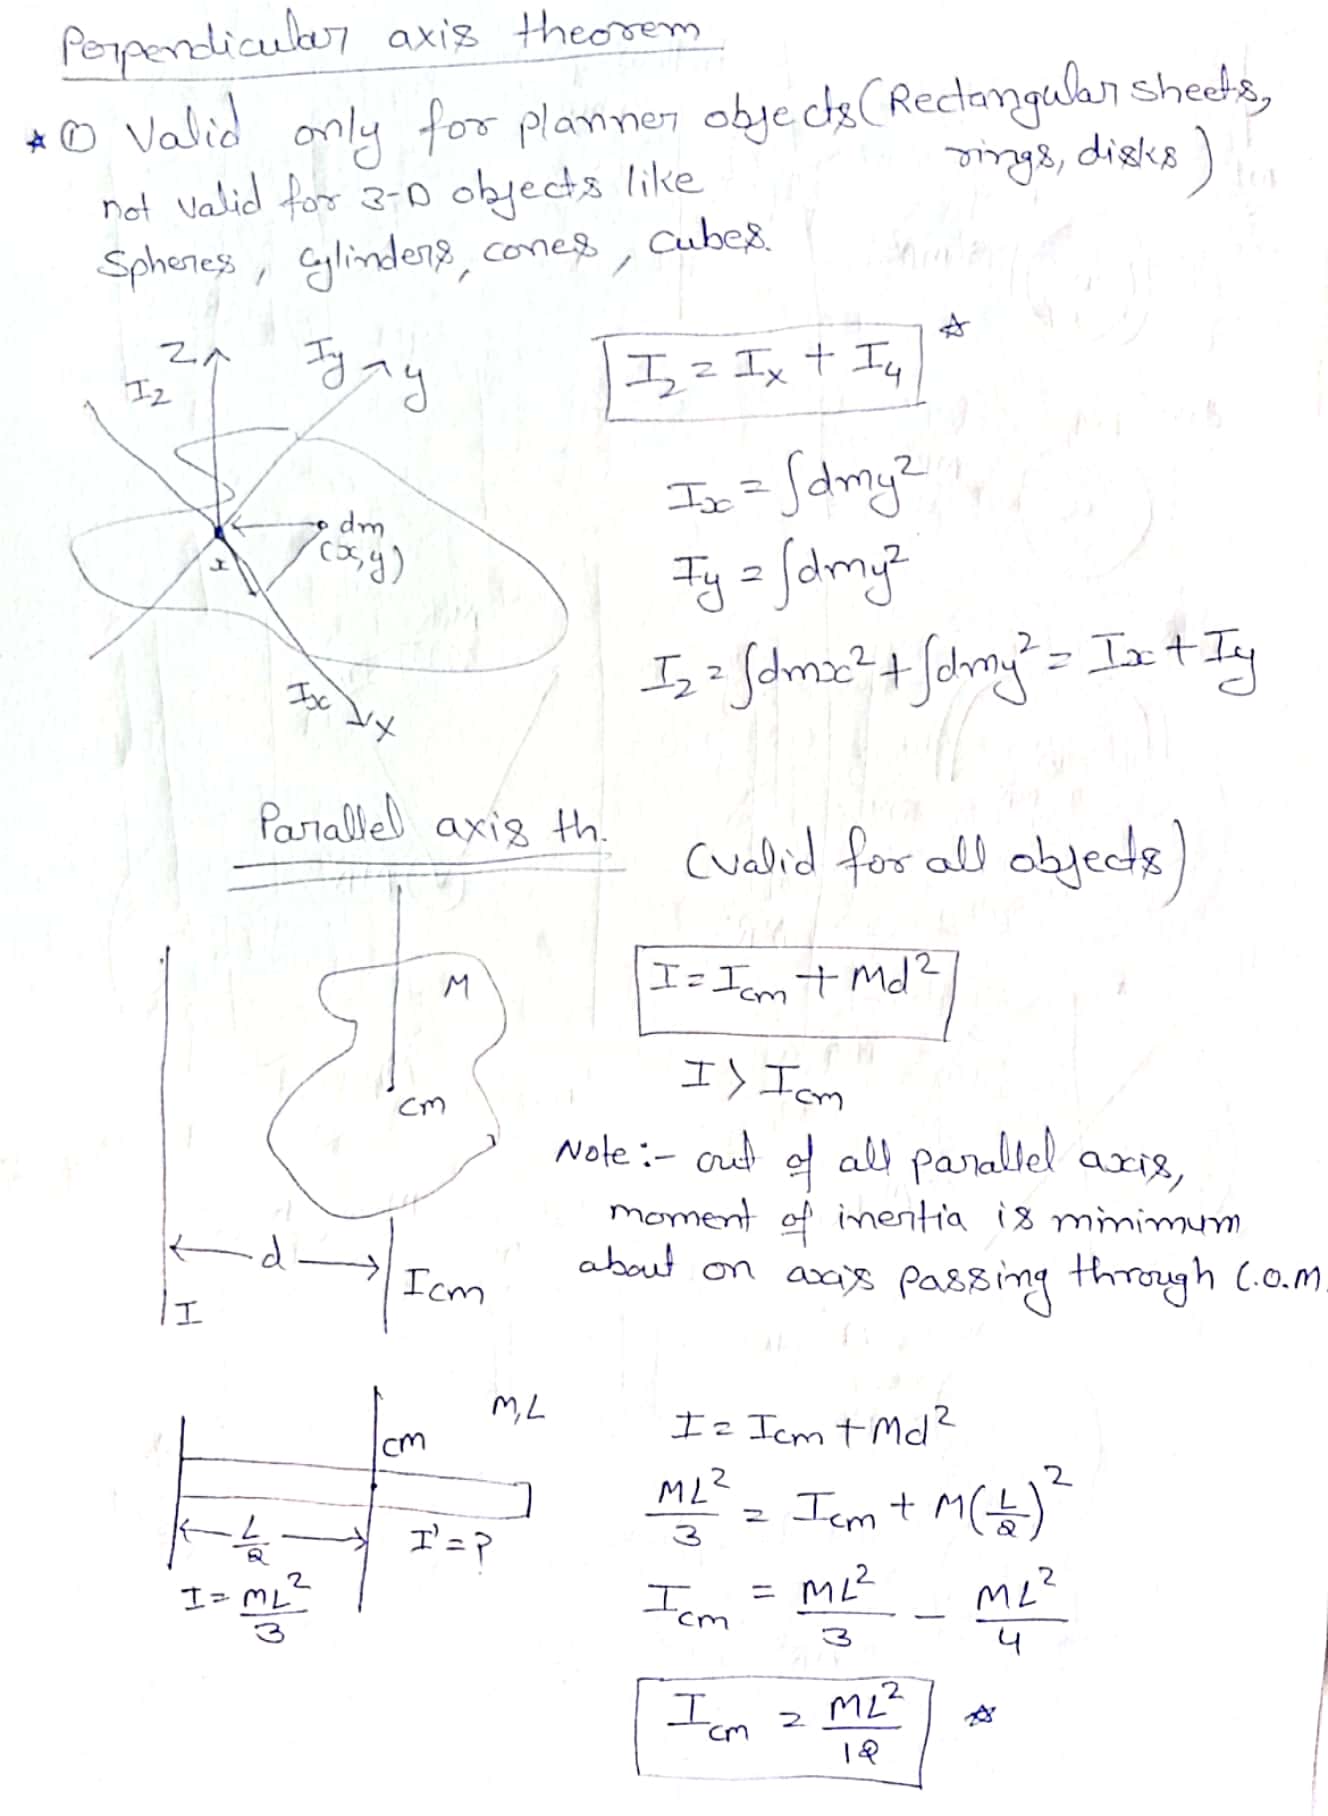 Perpendicular axis theorem
① Valid only for planner objects (Rectangular sheets,
rings, disks)
not valid for 3-D objects like
Spheres, Cylinders, cones, cubes.
Z
Iz
Iy
y
Iz = Ix + Iy
dm
(x,y)
x
Ix
X
Ix = ∫dmy²
Iy = ∫dmy²
Iz = ∫dmx² + ∫dmy² = Ix + Iy
Parallel axis th.
(valid for all objects)
M
cm
d
I
Icm
I = Icm + Md²
I > Icm
Note :- out of all parallel axis,
moment of inertia is minimum
about on axis passing through C.O.M.
M, L
cm
L/2
I' = ?
I = ML²/3
I = Icm + Md²
ML²/3 = Icm + M(L/2)²
Icm = ML²/3 - ML²/4
Icm = ML²/12